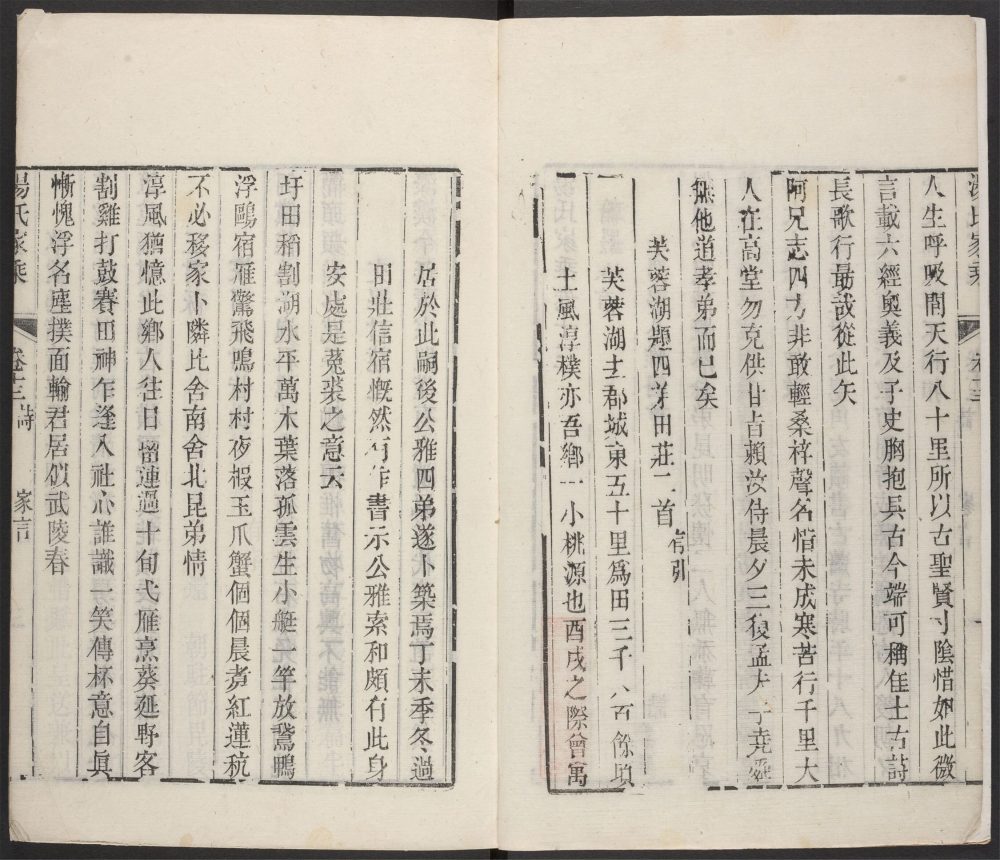 湯氏家乘 卷十三 詩
人生呼吸間天行八十里所以古聖賢寸陰惜如此微
言載六經奧義及子史胸抱具古今端可稱佳士古詩
長歌行最哉從此矢
阿兄志四方非敢輕桑梓聲名惜未成寒苦行千里大
人在高堂勿克供甘旨賴汝侍晨夕三復孟夫子堯舜
無他道孝弟而已矣
芙蓉湖題四弟田莊二首 有引
芙蓉湖去郡城東五十里爲田三千八百餘頃
土風淳樸亦吾鄉一小桃源也酉戌之際曾寓
居於此嗣後公雅四弟遂卜築焉丁未季冬過
田莊信宿慨然有作書示公雅索和頗有此身
安處是菟裘之意云
圩田稻割湖水平萬木葉落孤雲生小艇一竿放鵞鴨
浮鷗宿雁驚飛鳴村村夜椴玉爪蟹個個晨舂紅蓮秔
不必移家卜隣比舍南舍北昆弟情
淳風猶憶此鄉人往日留連過十旬弋雁烹葵延野客
割雞打鼓賽田神乍逢入社心誰識一笑傳杯意自眞
慚愧浮名塵撲面輸君居似武陵春
湯氏家乘 卷十三 詩 家言